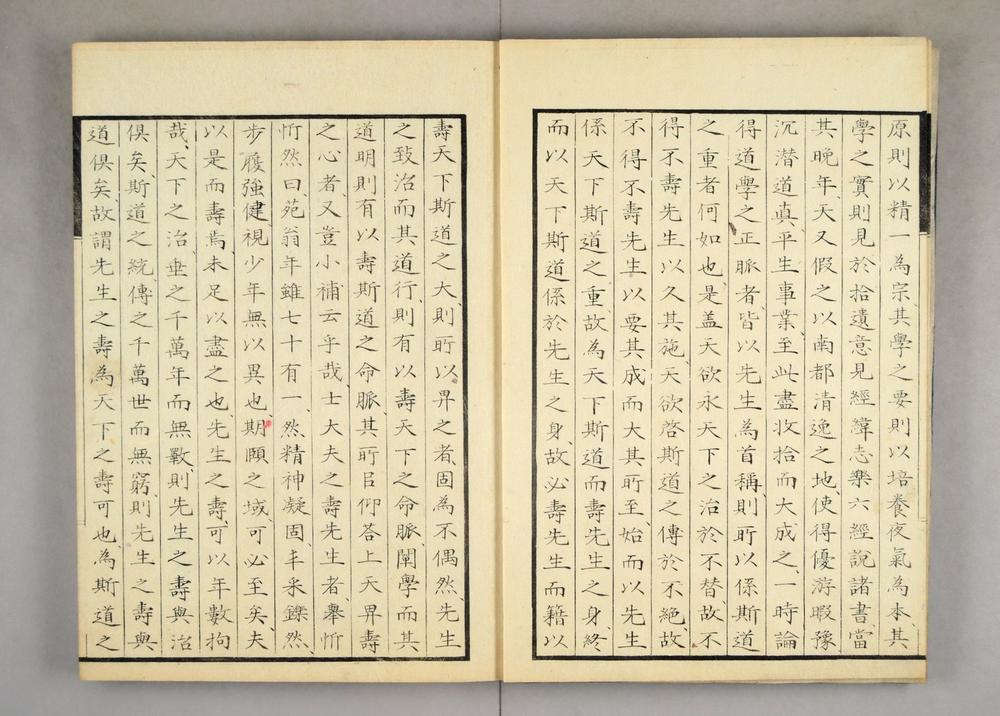 原則以精一為宗、其學之要則以培養夜氣為本、其
學之實則見於拾遺意見經緯志樂六經說諸書、當
其晚年、天又假之以南都清逸之地、使得優游暇豫
沉潜道真、平生事業、至此盡收拾而大成之、一時論
得道學之正脈者、皆以先生為首稱、則所以係斯道
之重者何如也、是盖天欲永天下之治於不替故不
得不壽先生以久其施、天欲啓斯道之傳於不絕、故
不得不壽先生以要其成而大其所至、始而以先生
係天下斯道之重、故為天下斯道而壽先生之身、終
而以天下斯道係於先生之身、故必壽先生而籍以
壽天下斯道之大、則所以畀之者、固為不偶然、先生
之致治而其道行、則有以壽天下之命脈、闡學而其
道明則有以壽斯道之命脈、其所㠯仰答上天畀壽
之心者、又豈小補云乎哉、士大夫之壽先生者、舉忻
忻然曰、苑翁年雖七十有一、然精神凝固、丰采鑠然、
步履強健、視少年無以異也、期頤之域、可必至矣、夫
以是而壽焉、未足以盡之也、先生之壽、可以年數拘
哉、天下之治、垂之千萬年而無斁、則先生之壽與治
俱矣、斯道之統、傳之千萬世而無窮、則先生之壽與
道俱矣、故謂先生之壽為天下之壽可也、為斯道之